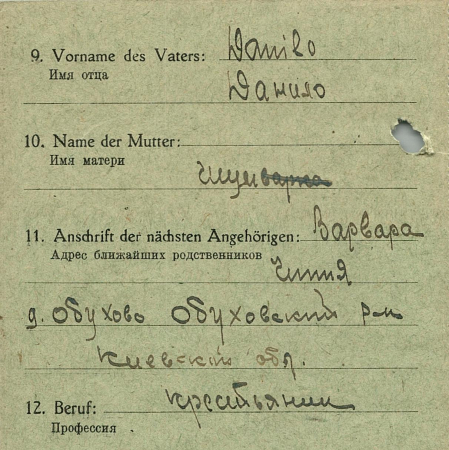 9. Vorname des Vaters: Danilo
Имя отца Данило
10. Name der Mutter:
Имя матери
11. Anschrift der nächsten Angehörigen: Варвара
Адрес ближайших родственников
д. Обухово Обуховский р-н
Киевский обл.
12. Beruf: крестьянин
Профессия